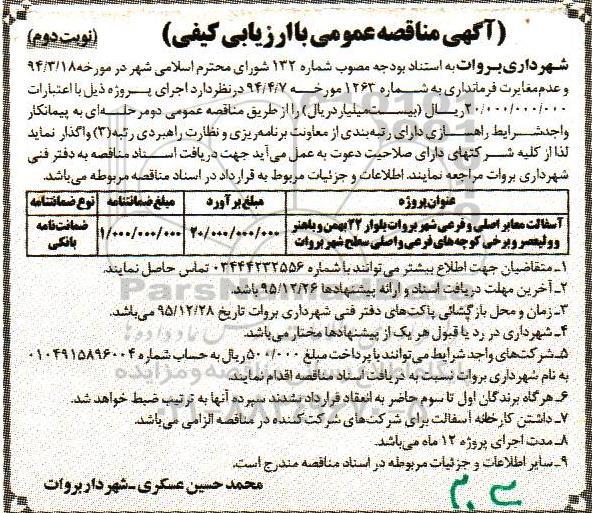 (آگهی مناقصه عمومی با ارزیابی کیفی)
(نوبت دوم)
شهرداری بروات به استناد بودجه مصوب شماره ۱۳۲ شورای محترم اسلامی شهر در مورخه ۹۴/۳/۱۸
و عدم مغایرت فرمانداری به شماره ۱۲۶۳ مورخه ۹۴/۴/۷ درنظر دارد اجرای پروژه ذیل با اعتبارات
۲۰/۰۰۰/۰۰۰/۰۰۰ ریال (بیست میلیارد ریال) را از طریق مناقصه عمومی دومرحله‌ای به پیمانکار
واجدشرایط راهسازی دارای رتبه‌بندی از معاونت برنامه‌ریزی و نظارت راهبردی رتبه(۳) واگذار نماید
لذا از کلیه شرکتهای دارای صلاحیت دعوت به عمل می‌آید جهت دریافت اسناد مناقصه به دفتر فنی
شهرداری بروات مراجعه نمایند. اطلاعات و جزئیات مربوط به قرارداد در اسناد مناقصه مربوطه می‌باشد.
عنوان پروژه مبلغ برآورد مبلغ ضمانتنامه نوع ضمانتنامه
آسفالت معابر اصلی و فرعی شهر بروات بلوار ۲۲ بهمن و باهنر
و ولیعصر و برخی کوچه‌های فرعی و اصلی سطح شهر بروات
۲۰/۰۰۰/۰۰۰/۰۰۰ ۱/۰۰۰/۰۰۰/۰۰۰ ضمانت‌نامه
بانکی
۱ـ متقاضیان جهت اطلاع بیشتر می‌توانند با شماره ۰۳۴۴۴۲۳۲۵۵۶ تماس حاصل نمایند.
۲ـ آخرین مهلت دریافت اسناد و ارائه پیشنهادها ۹۵/۱۲/۲۶ باشد.
۳ـ زمان و محل بازگشائی پاکت‌های دفتر فنی شهرداری بروات تاریخ ۹۵/۱۲/۲۸ می‌باشد.
۴ـ شهرداری در رد یا قبول هر یک از پیشنهادها مختار می‌باشد.
۵ـ شرکت‌های واجد شرایط می‌توانند با پرداخت مبلغ ۵۰۰/۰۰۰ ریال به حساب شماره ۰۱۰۴۹۱۵۸۹۶۰۰۴
به نام شهرداری بروات نسبت به دریافت اسناد مناقصه اقدام نمایند.
۶ـ هرگاه برندگان اول تا سوم حاضر به انعقاد قرارداد نشدند سپرده آنها به ترتیب ضبط خواهد شد.
۷ـ داشتن کارخانه آسفالت برای شرکت‌های شرکت‌کننده در مناقصه الزامی می‌باشد.
۸ـ مدت اجرای پروژه ۱۲ ماه می‌باشد.
۹ـ سایر اطلاعات و جزئیات مربوطه در اسناد مناقصه مندرج است.
محمدحسین عسکری ـ شهردار بروات